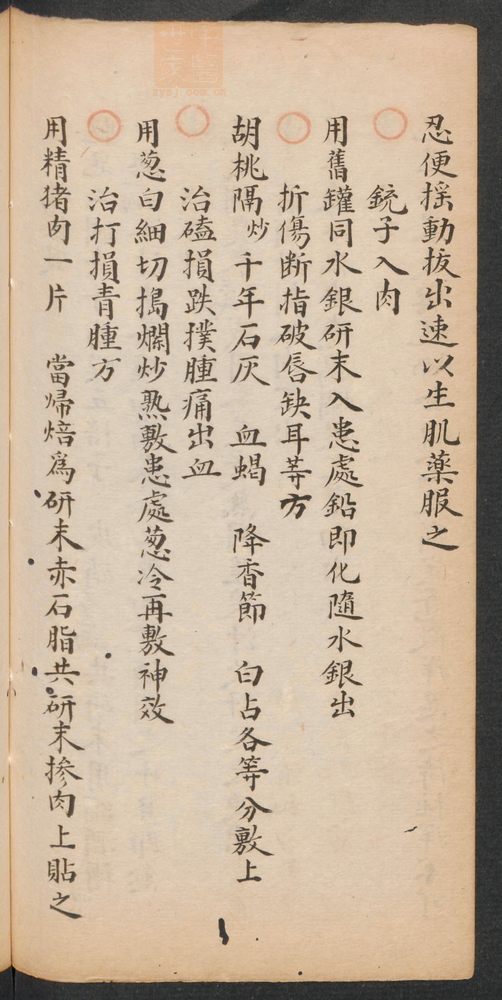 忍便揺動拔出速以生肌藥服之
銃子入肉
用舊罐同水銀研末入患處鉛即化隨水銀出
折傷断指破唇缺耳䓁方
胡桃隔炒 千年石灰 血蝎 降香節 白占各等分敷上
治磕損跌撲腫痛出血
用葱白細切搗爛炒熟敷患處葱冷再敷神效
治打損青腫方
用精猪肉一片 當帰焙為研末赤石脂共研末掺肉上貼之